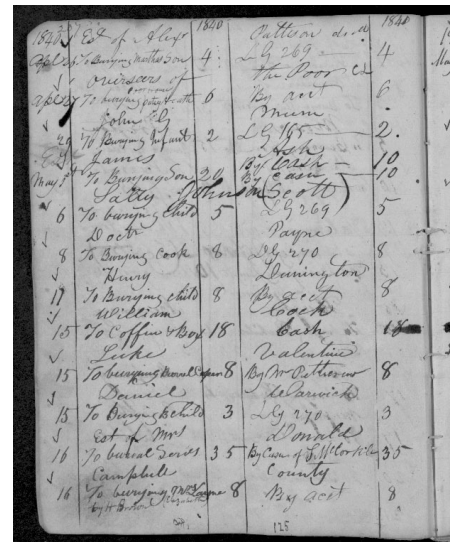 1840 Est of Alexr 1840 Pattison decd 1840
Apl 25 To Burying Mother & Son 4 LG 269 4
Overseers of the Poor
Apl 27 To burying 6 By acct 6
John G Mumm
29 To Burying Infant 2 LG 165 2.
James Ash
By Cash 10
May 5 To Burying Son 20 By Cash 10
Sally Johnson (Scott)
6 To burying child 5 LG 269 5
Doctr Payne
8 To Burying Cook 8 LG 270 8
Henry Dunnington
17 To Burying child 8 By acct 8
William Cock
15 To Coffin & Box 18 Cash 18
Luke Valentine
15 To burying 8 By Wm Pettross 8
Daniel Warwick
15 To Burying B child 3 LG 270 3
Est of Mrs Donald
16 To bureal Services 35 By Cash of 35
Campbell County
16 To burying Mr Layne 8 By acct 8
by H Brown
125